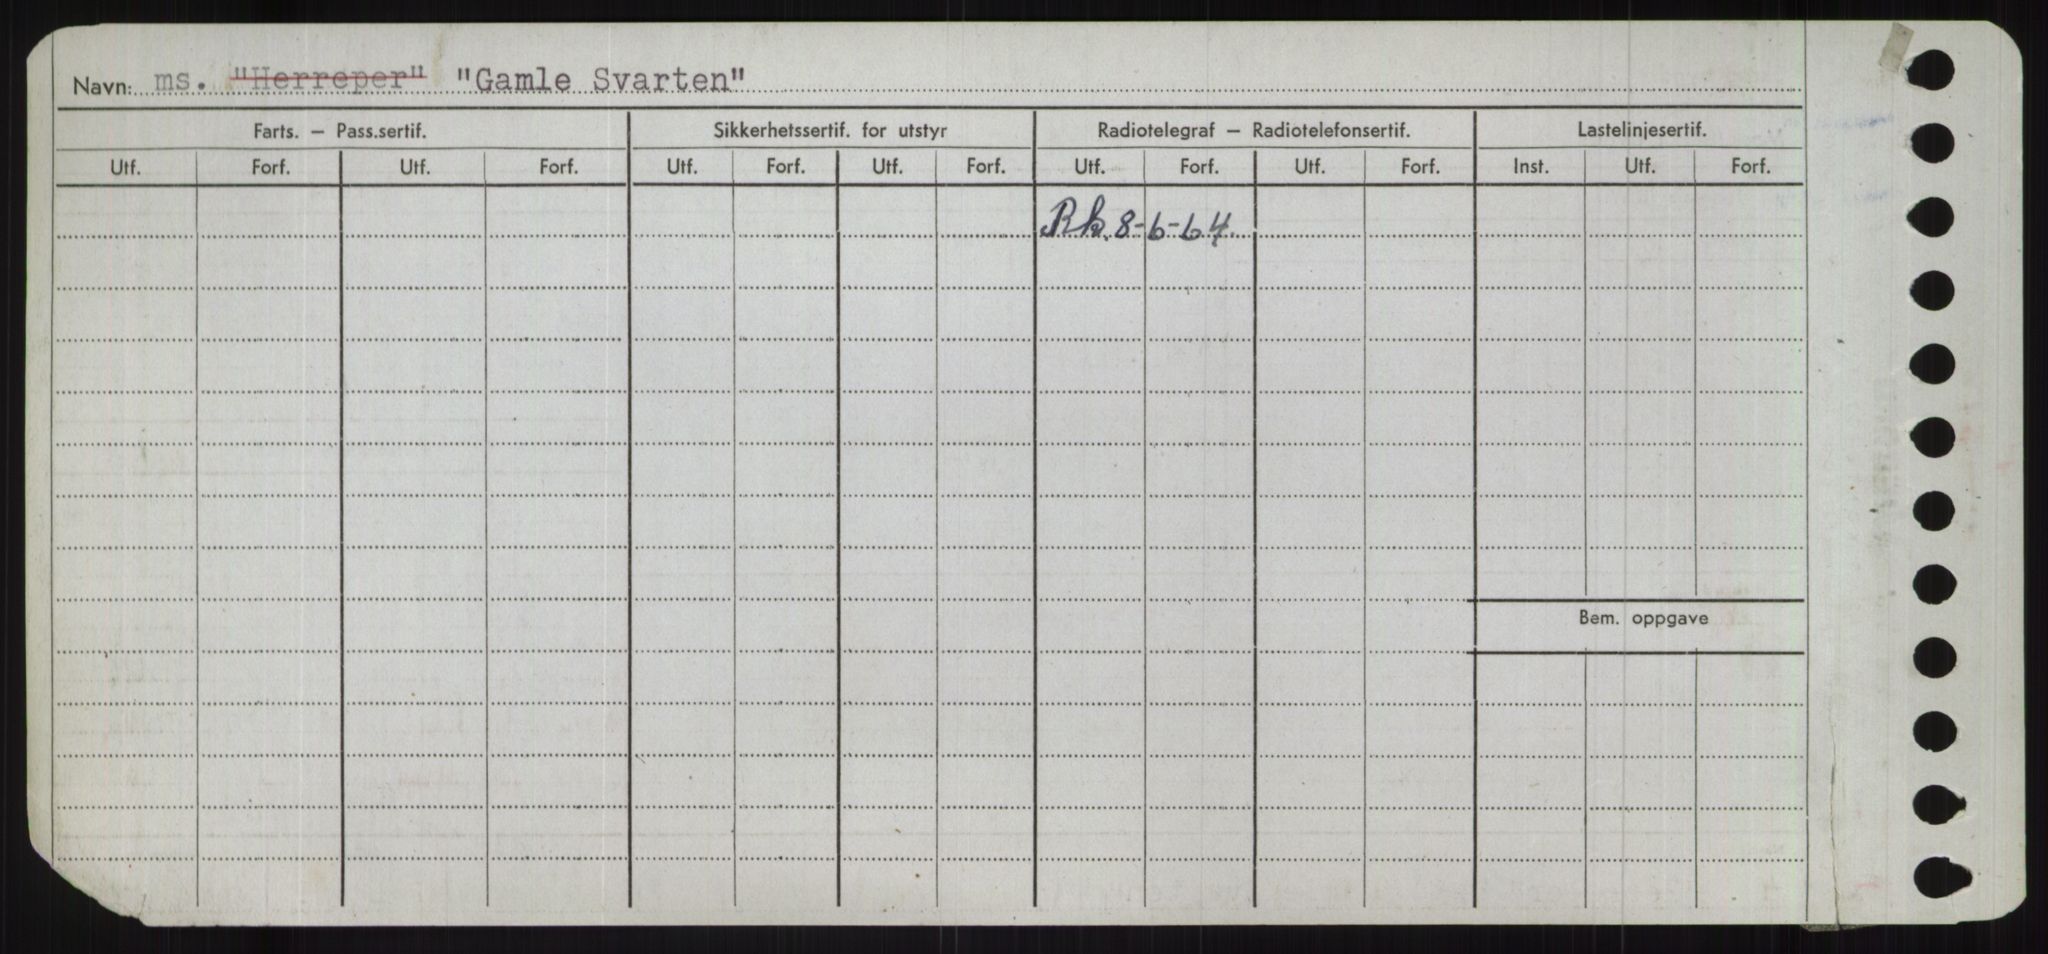 Navn: ms. "Herreper" "Gamle Svarten"
Farts. – Pass.sertif. Sikkerhetssertif. for utstyr Radiotelegraf – Radiotelefonsertif. Lastelinjesertif.
Utf. Forf. Utf. Forf. Utf. Forf. Utf. Forf. Utf. Forf. Utf. Forf. Inst. Utf. Forf.
Rk. 8-6-64.
Bem. oppgave